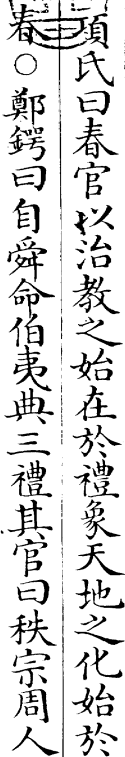 項氏曰春官以治教之始在於禮象天地之化始於
春○鄭鍔曰自舜命伯夷典三禮其官曰秩宗周人